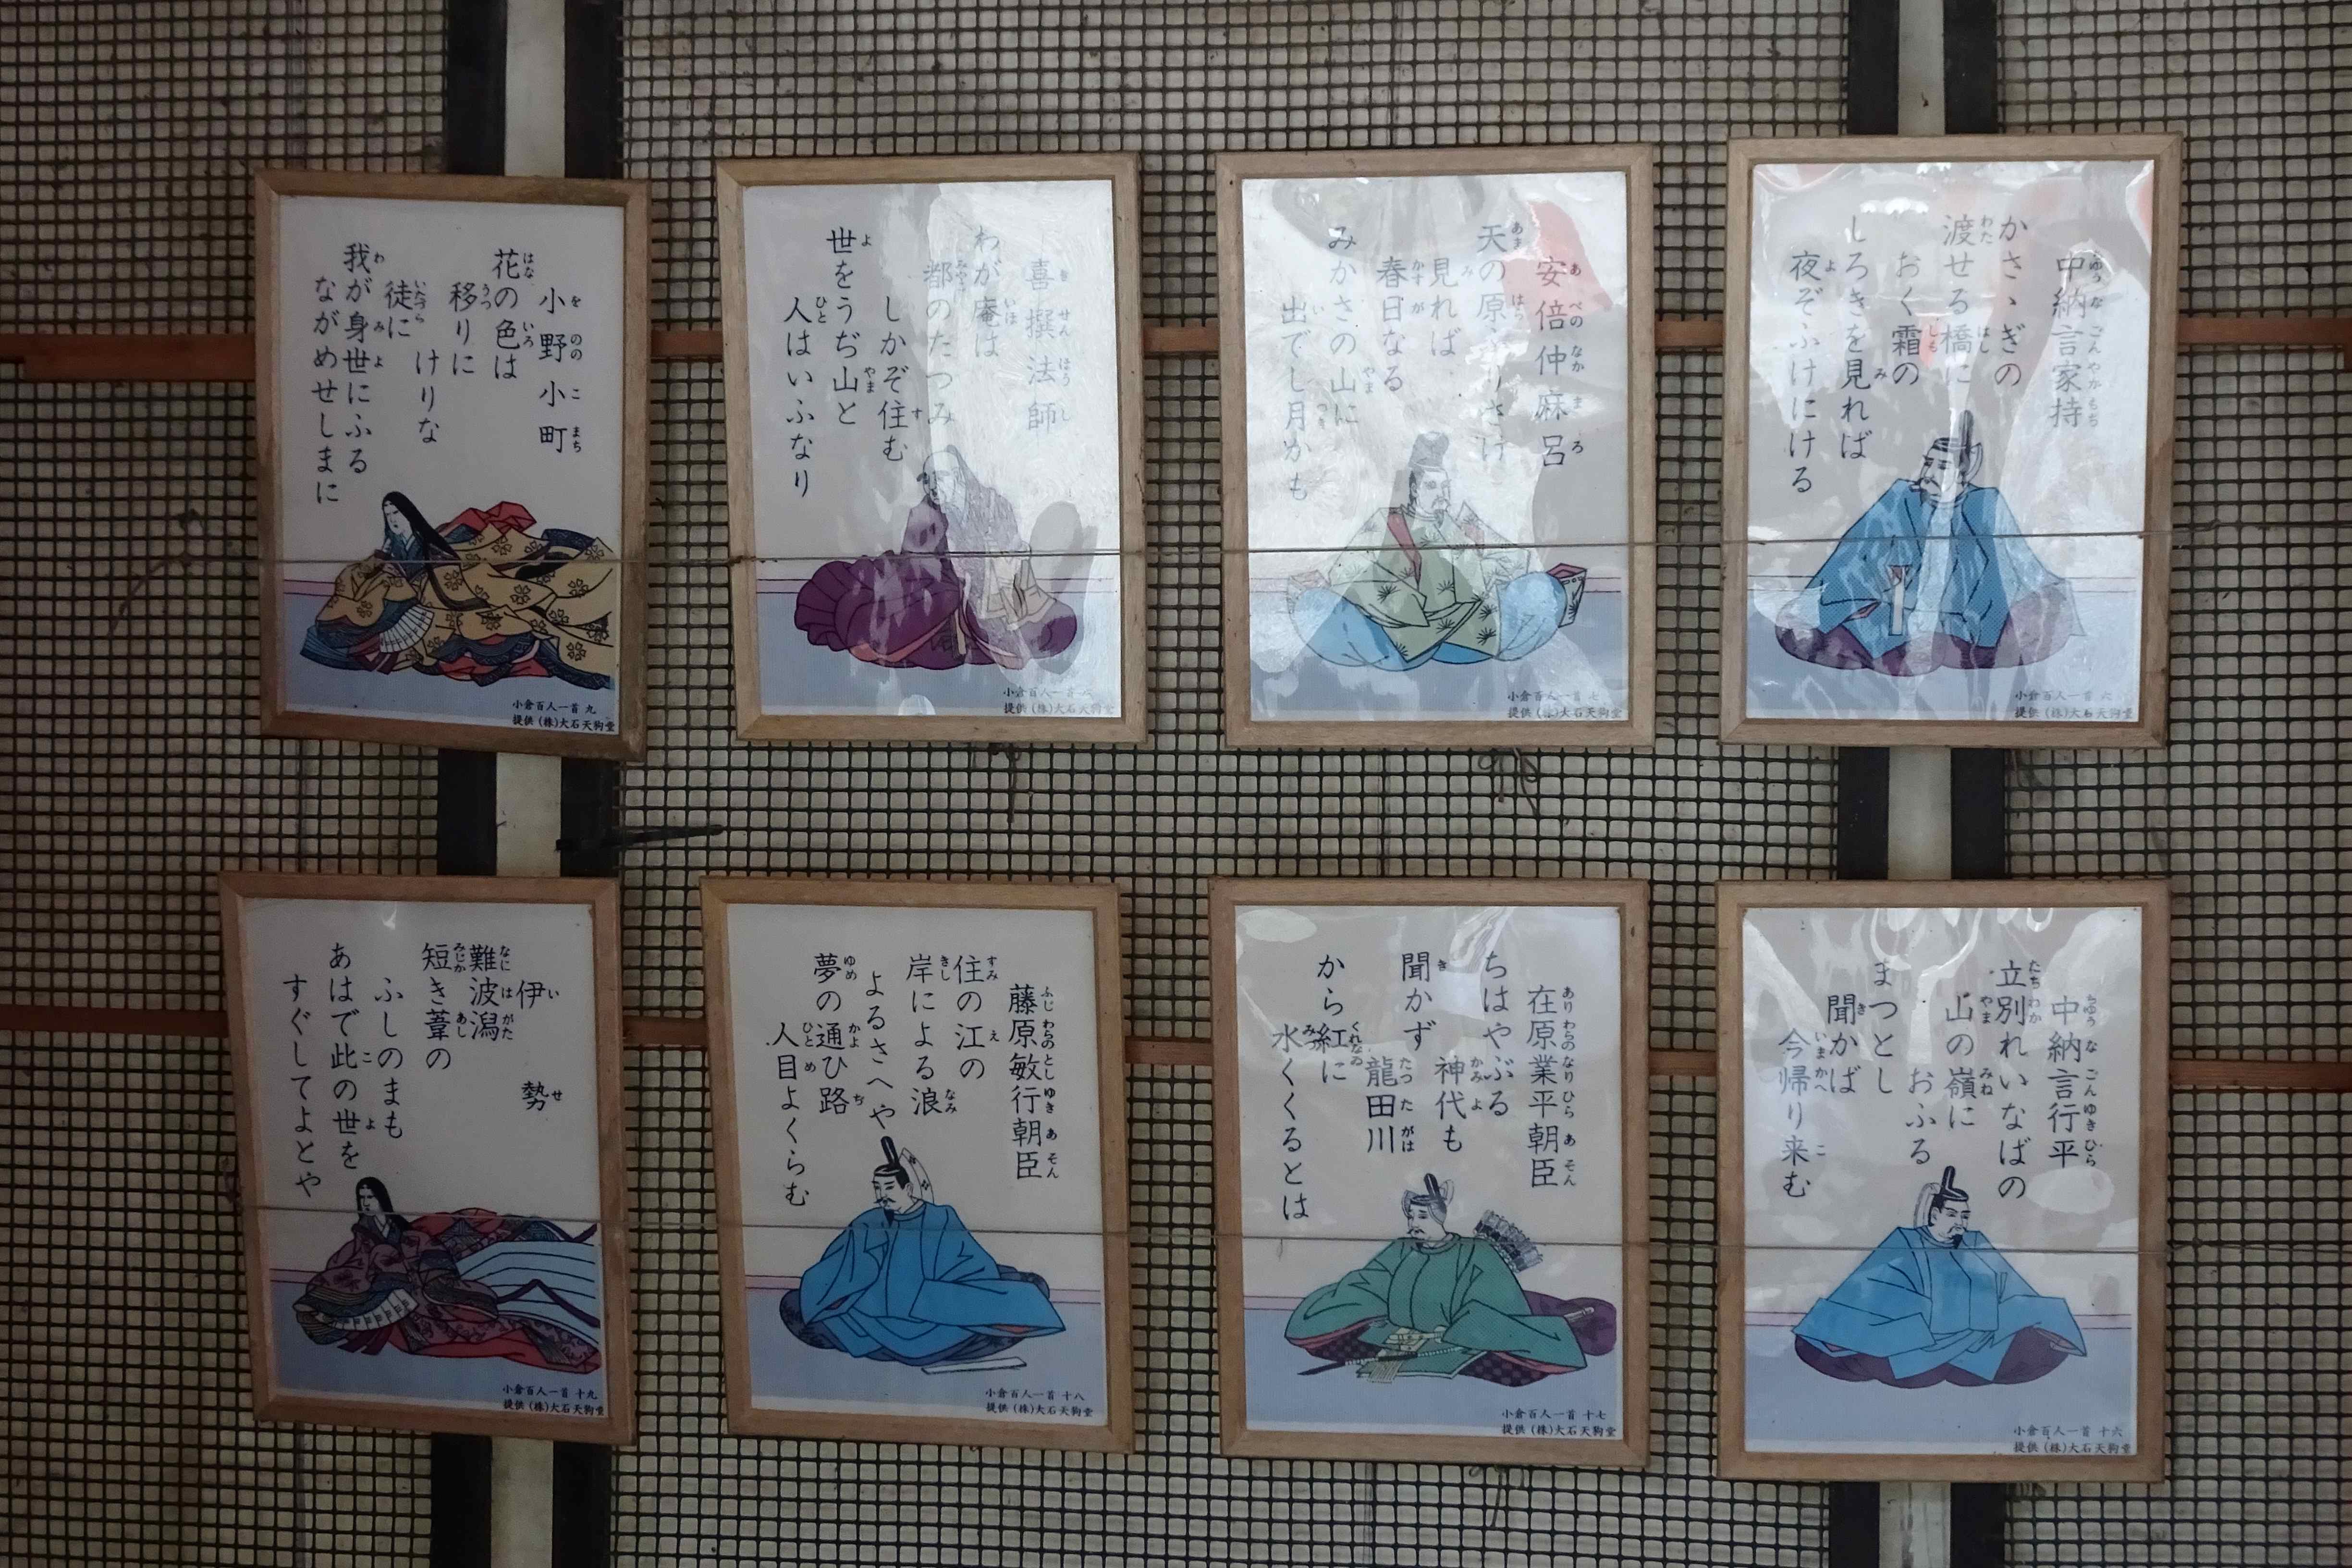 中納言家持
かさゝぎの
渡せる橋に
おく霜の
しろきを見れば
夜ぞふけにける
小倉百人一首 六
提供 (株)大石天狗堂
安倍仲麻呂
天の原ふりさけ
見れば
春日なる
みかさの山に
出でし月かも
小倉百人一首 七
提供 (株)大石天狗堂
喜撰法師
わが庵は
都のたつみ
しかぞ住む
世をうぢ山と
人はいふなり
小倉百人一首 八
提供 (株)大石天狗堂
小野小町
花の色は
移りに
けりな
徒に
我が身世にふる
ながめせしまに
小倉百人一首 九
提供 (株)大石天狗堂
中納言行平
立別れいなばの
山の嶺に
おふる
まつとし
聞かば
今帰り来む
小倉百人一首 十六
提供 (株)大石天狗堂
在原業平朝臣
ちはやぶる
神代も
聞かず
龍田川
から紅に
水くくるとは
小倉百人一首 十七
提供 (株)大石天狗堂
藤原敏行朝臣
住の江の
岸による浪
よるさへや
夢の通ひ路
人目よくらむ
小倉百人一首 十八
提供 (株)大石天狗堂
伊勢
難波潟
短き葦の
ふしのまも
あはで此の世を
すぐしてよとや
小倉百人一首 十九
提供 (株)大石天狗堂